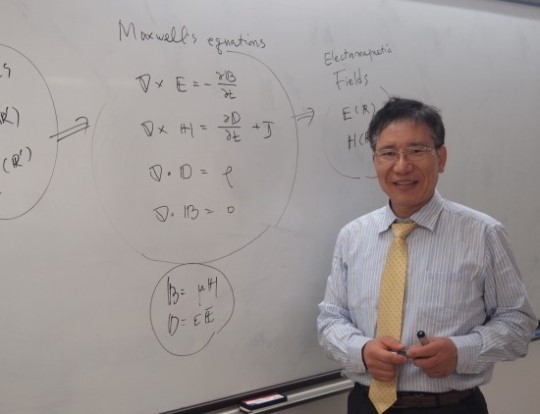 Maxwell's equations
∇× E = - ∂B/∂t
∇× H = ∂D/∂t + J
∇· D = ρ
∇· B = 0
B = μH
D = εE
Electromagnetic
Fields
E(R)